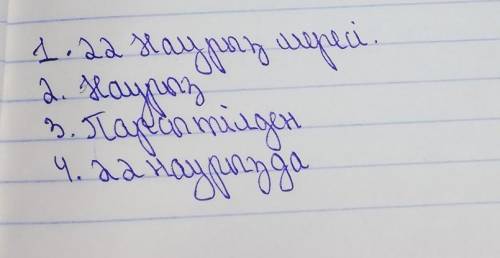 1. 22 Наурыз мересі.
2. Наурыз
3. Парсы тілден
4. 22 наурызда